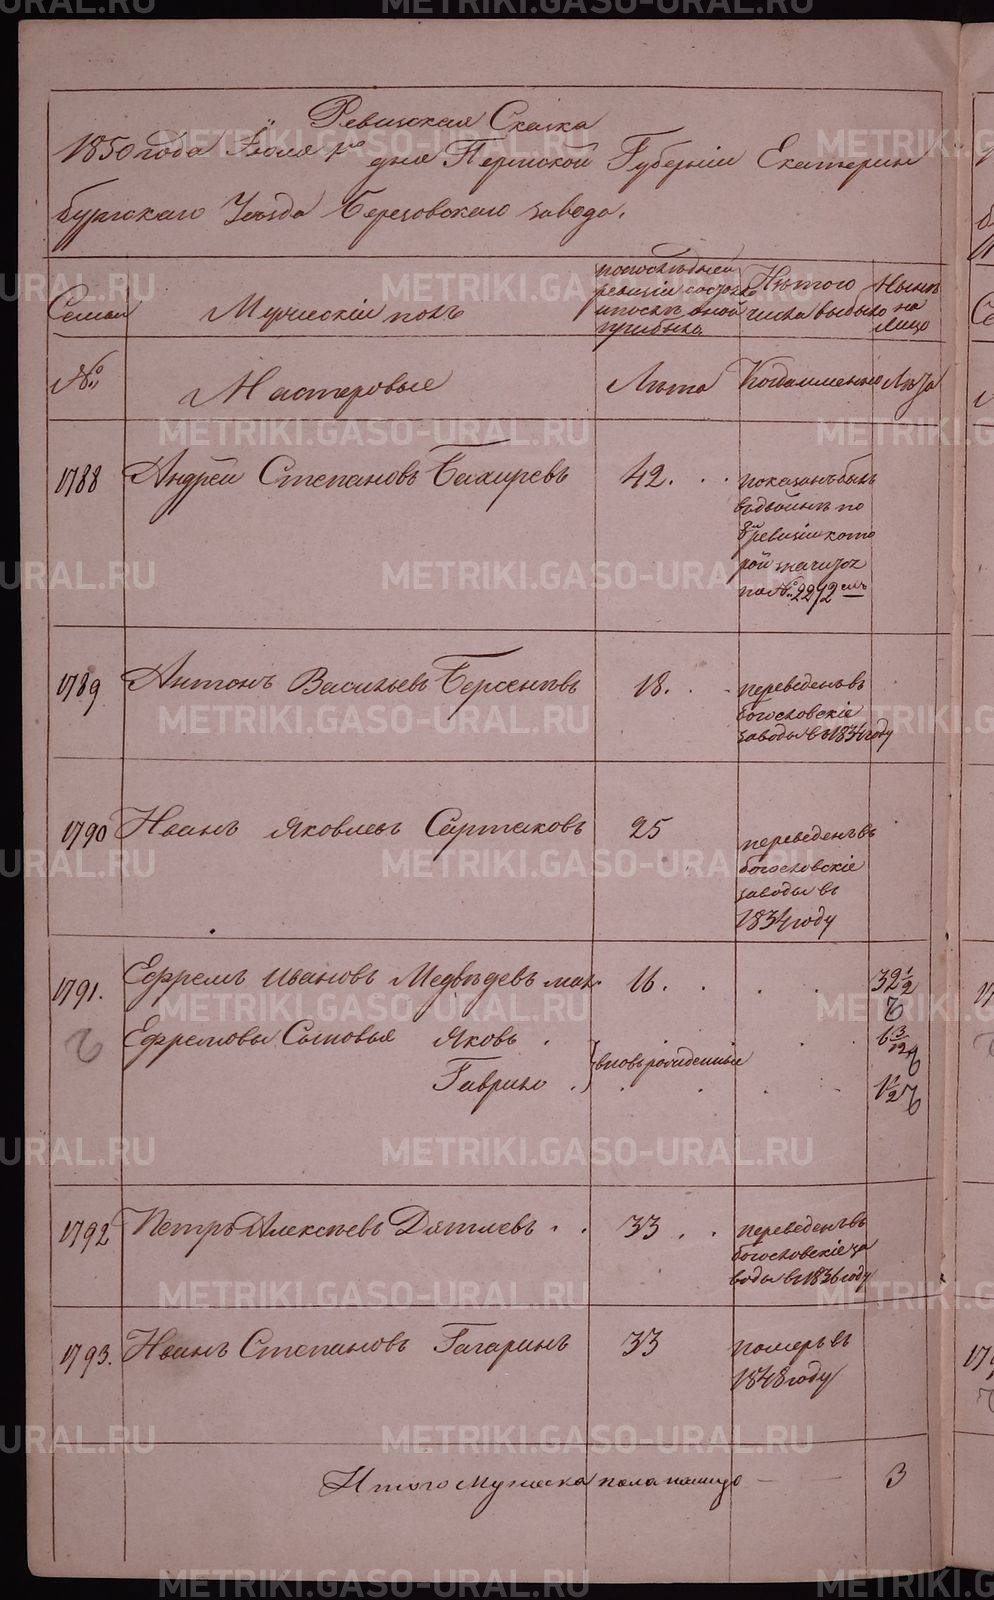 Ревизская Сказка
1850 года Іюля 1го дня Пермской Губерніи Екатерин
бургскаго Уезда Березовскаго завода.
Семьи
Мужескій полъ
по последней ревизіи состояло и после оной прибыло
Изъ того числа выбыло
Ныне на лицо
№
Мастеровые
Лета
Когда именно
Лета
1788 Андрей Степановъ Бахиревъ 42.
показанъ былъ
вдвойне по
8й ревизіи кото
рой значится
по № 2292 емъ
1789 Антонъ Васильевъ Берсеневъ 18.
переведенъ въ
богословскіе
заводы въ 1834 году
1790 Иванъ Яковлевъ Сартаковъ 25
переведенъ въ
богословскіе
заводы въ
1834 году
1791. Ефремъ Ивановъ Медведевъ 16. 32 1/2
Ефремовы Сыновья Яковъ 6 3/12
Гаврило вновь рожденные 1 1/2
1792 Петръ Алексеевъ Дятлевъ 33
переведенъ въ
богословскіе за
воды въ 1836 году
1793. Иванъ Степановъ Гагаринъ 33
померъ въ
1848 году
Итого мужеска пола налицо 3
METRIKI.GASO-URAL.RU